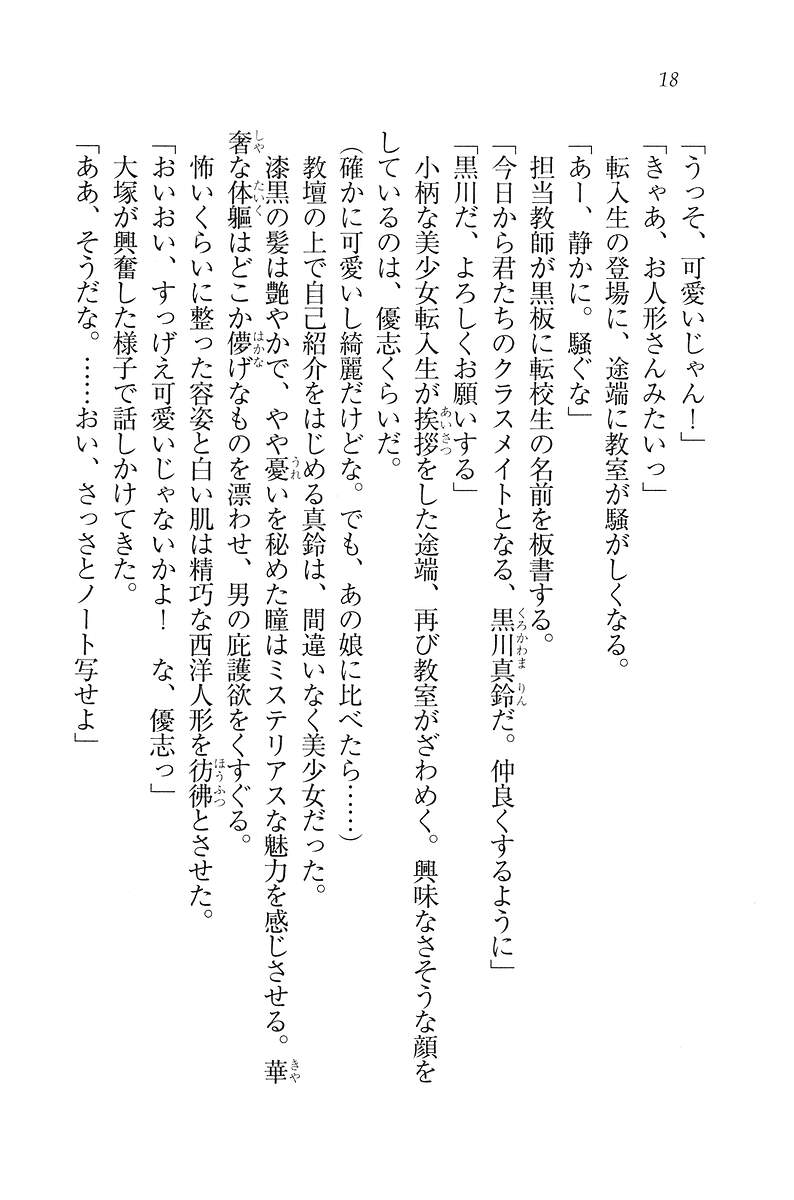 18
「うっそ、可愛いじゃん！」
「きゃあ、お人形さんみたいっ」
転入生の登場に、途端に教室が騒がしくなる。
「あー、静かに。騒ぐな」
担当教師が黒板に転校生の名前を板書する。
「今日から君たちのクラスメイトとなる、黒川真鈴だ。仲良くするように」
「黒川だ、よろしくお願いする」
小柄な美少女転入生が挨拶をした途端、再び教室がざわめく。興味なさそうな顔を
しているのは、優志くらいだ。
（確かに可愛いし綺麗だけどな。でも、あの娘に比べたら……）
教壇の上で自己紹介をはじめる真鈴は、間違いなく美少女だった。
漆黒の髪は艶やかで、やや憂いを秘めた瞳はミステリアスな魅力を感じさせる。華
奢な体軀はどこか儚げなものを漂わせ、男の庇護欲をくすぐる。
怖いくらいに整った容姿と白い肌は精巧な西洋人形を彷彿とさせた。
「おいおい、すっげえ可愛いじゃないかよ！　な、優志っ」
大塚が興奮した様子で話しかけてきた。
「ああ、そうだな。……おい、さっさとノート写せよ」